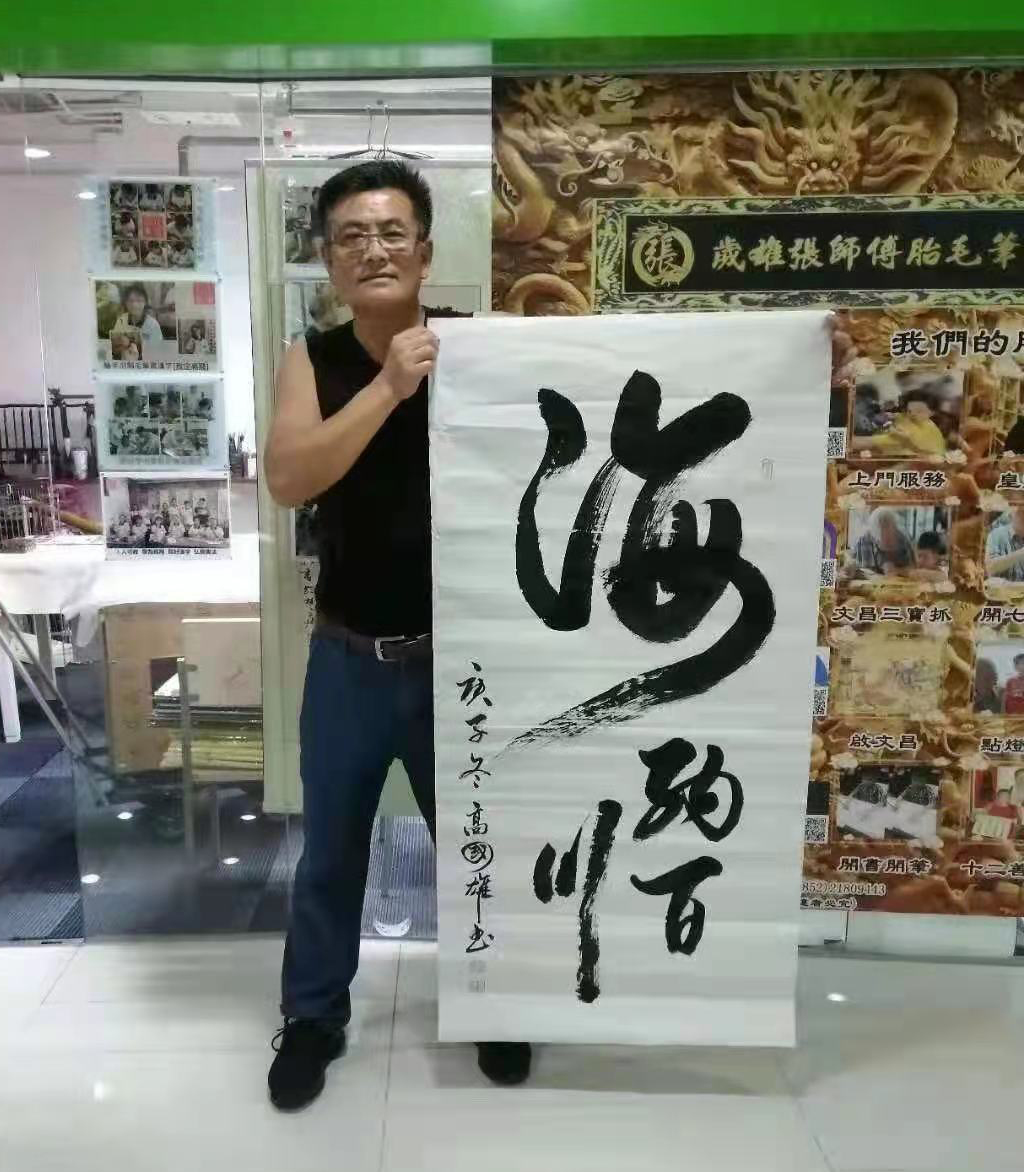 張
歲雄張師傅胎毛筆
我們的
海
納百
川
庚子冬高國雄书
上門服務
皇
文昌三寶抓
開七
啟文昌
點燈
十二善
852)21809443